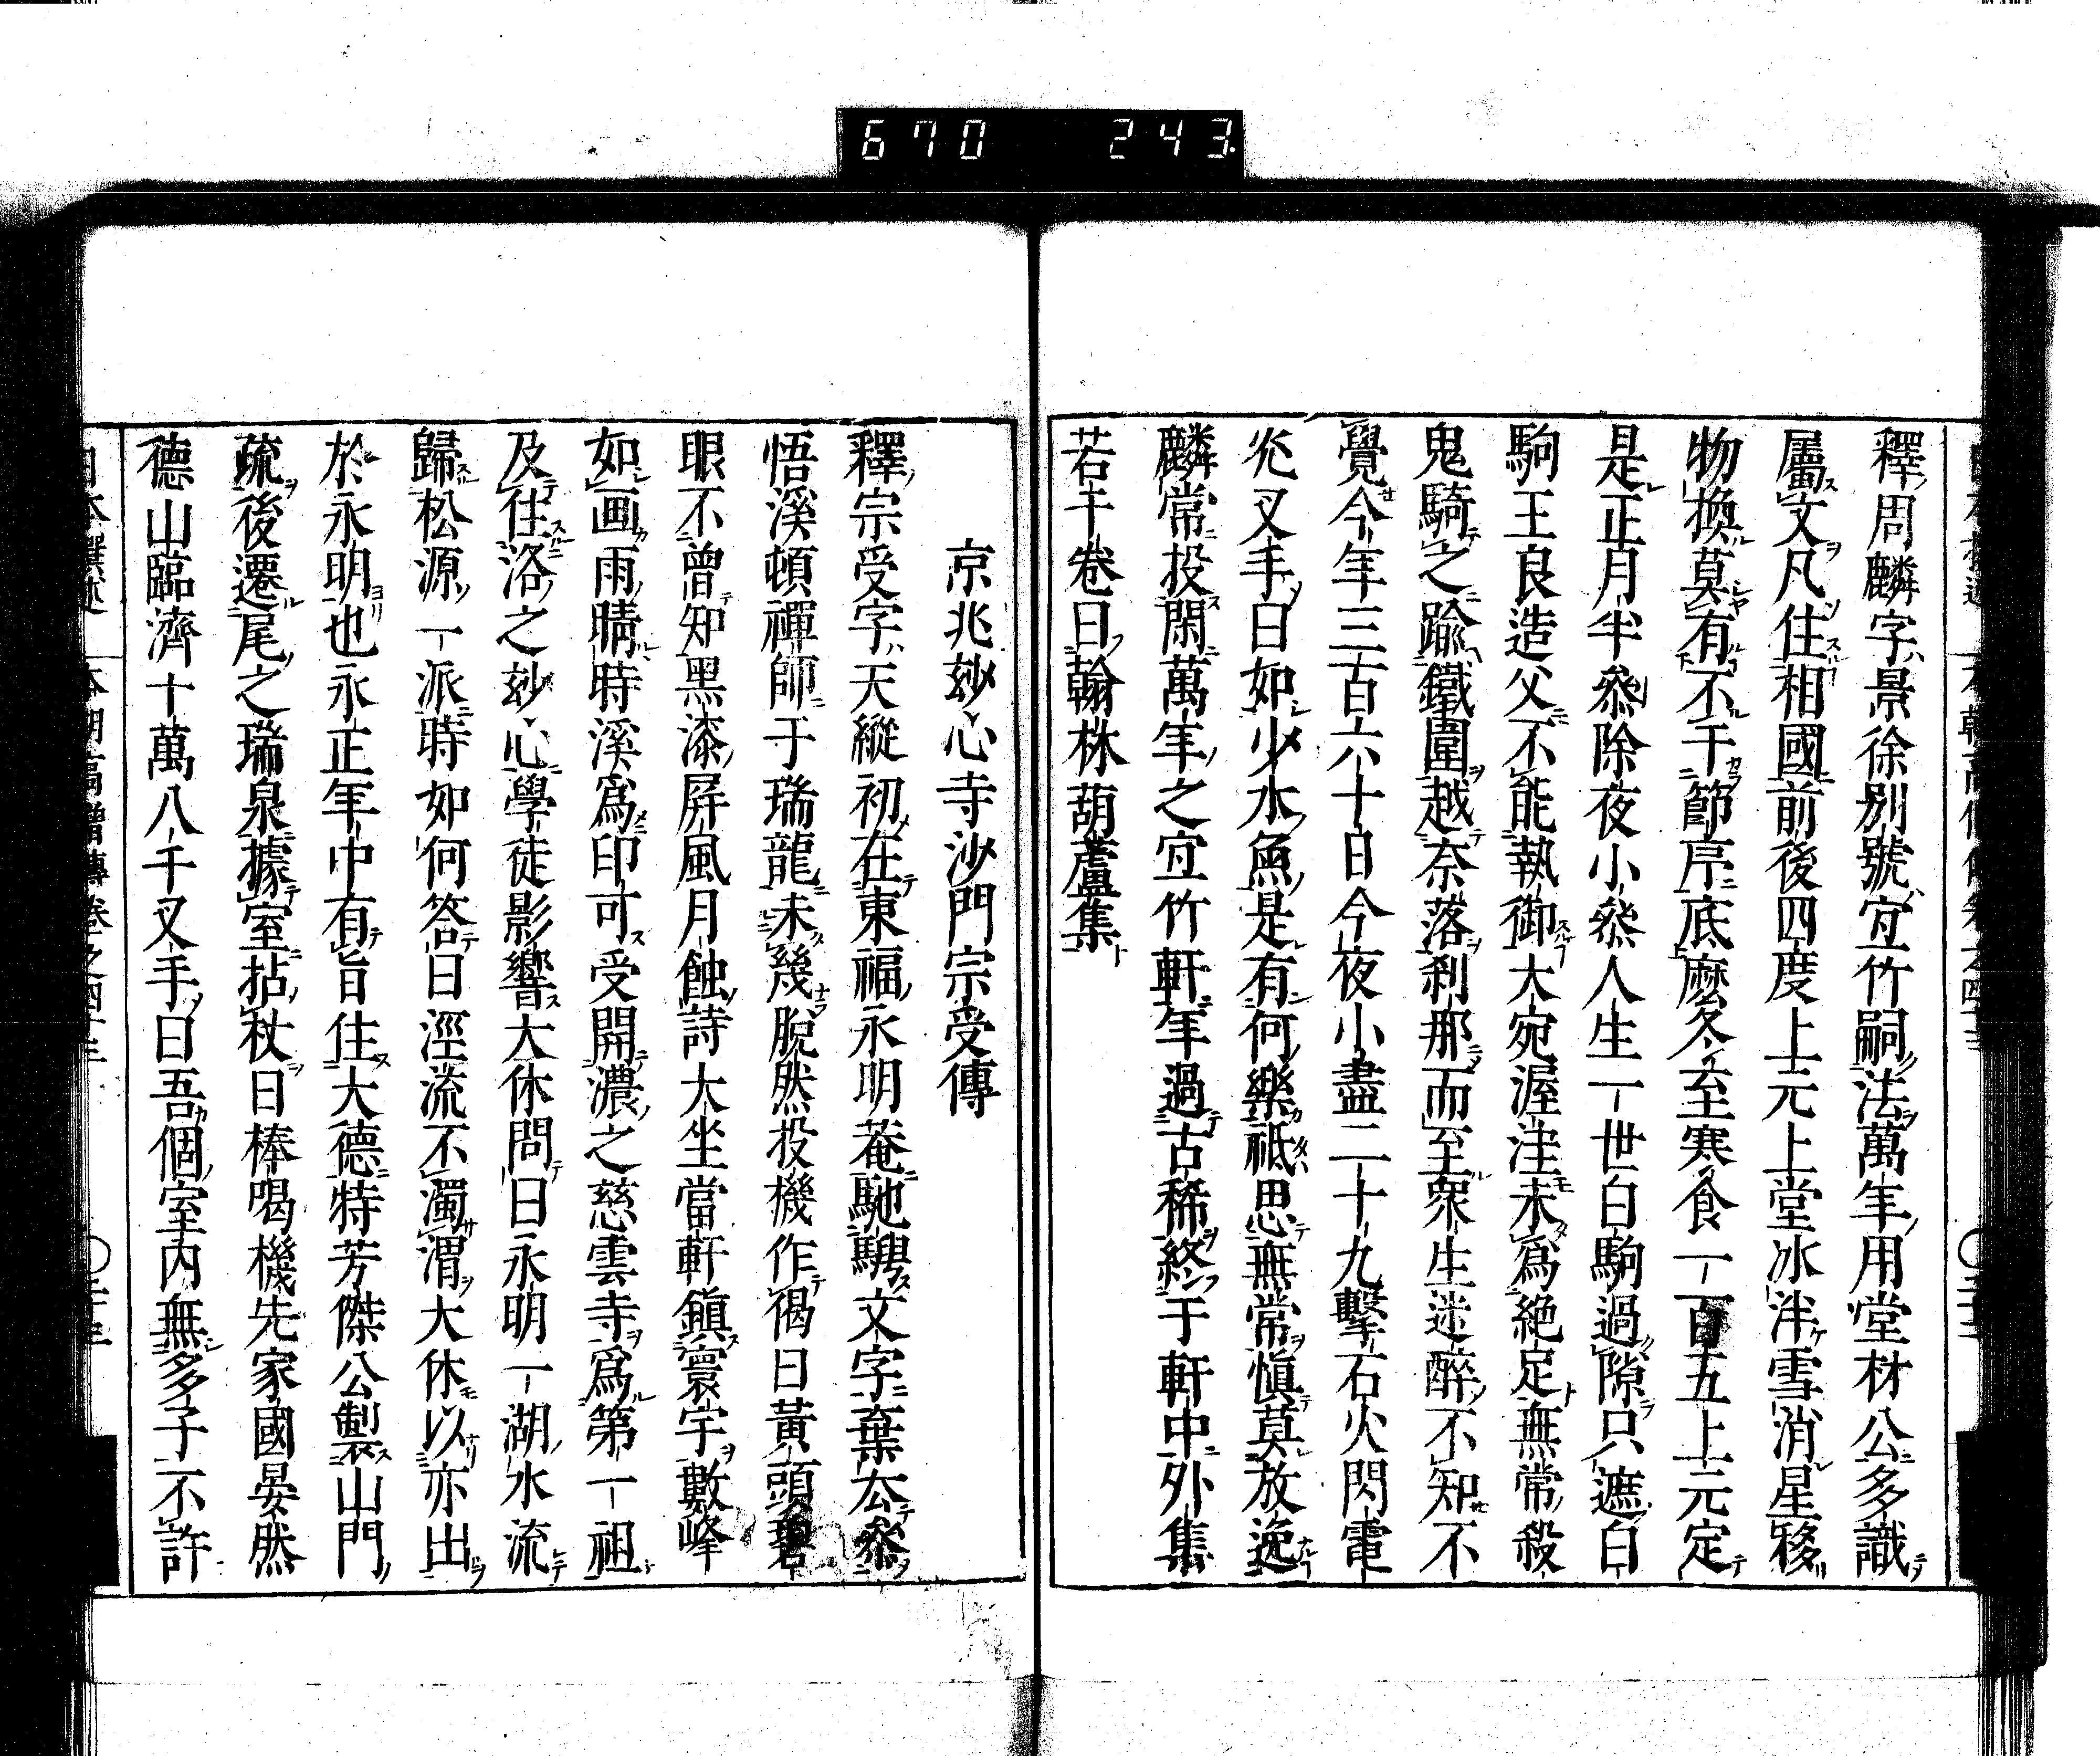 670 243
釋周麟字景徐別號宜竹嗣法萬年用堂材公多識
屬文凡住相國前後四度上元上堂冰泮雪消星移
物換莫有不干節序底麼冬至寒食一百五上元定
是正月半叅除夜小叅人生一世白駒過隙只遮白
駒王良造父不能執御大宛渥洼未爲絶足無常殺
鬼騎之踰鐵圍越奈落刹那而至衆生迷醉不知不
覺今年三百六十日今夜小盡二十九擊石火閃電
光叉手曰如少水魚是有何樂祗思無常愼莫放逸
麟常投閑萬年之宜竹軒年過古稀終于軒中外集
若干卷曰翰林葫蘆集
京兆玅心寺沙門宗受傳
釋宗受字天縱初在東福永明菴馳騁文字棄去叅
悟溪頓禪師于瑞龍未幾脫然投機作偈曰黃頭碧
眼不曾知黑漆屏風月蝕詩大坐當軒鎭寰宇數峰
如画雨晴時溪爲印可受開濃之慈雲寺爲第一祖
及住洛之玅心學徒影響大休問曰永明一湖水流
歸松源一派時如何答曰涇流不濁渭大休以亦出
於永明也永正年中有旨住大德特芳傑公製山門
疏後遷尾之瑞泉據室拈杖曰棒喝機先家國晏然
德山臨濟十萬八千叉手曰吾個室內無多子不許
日本撰述 本朝高僧傳卷之四十三